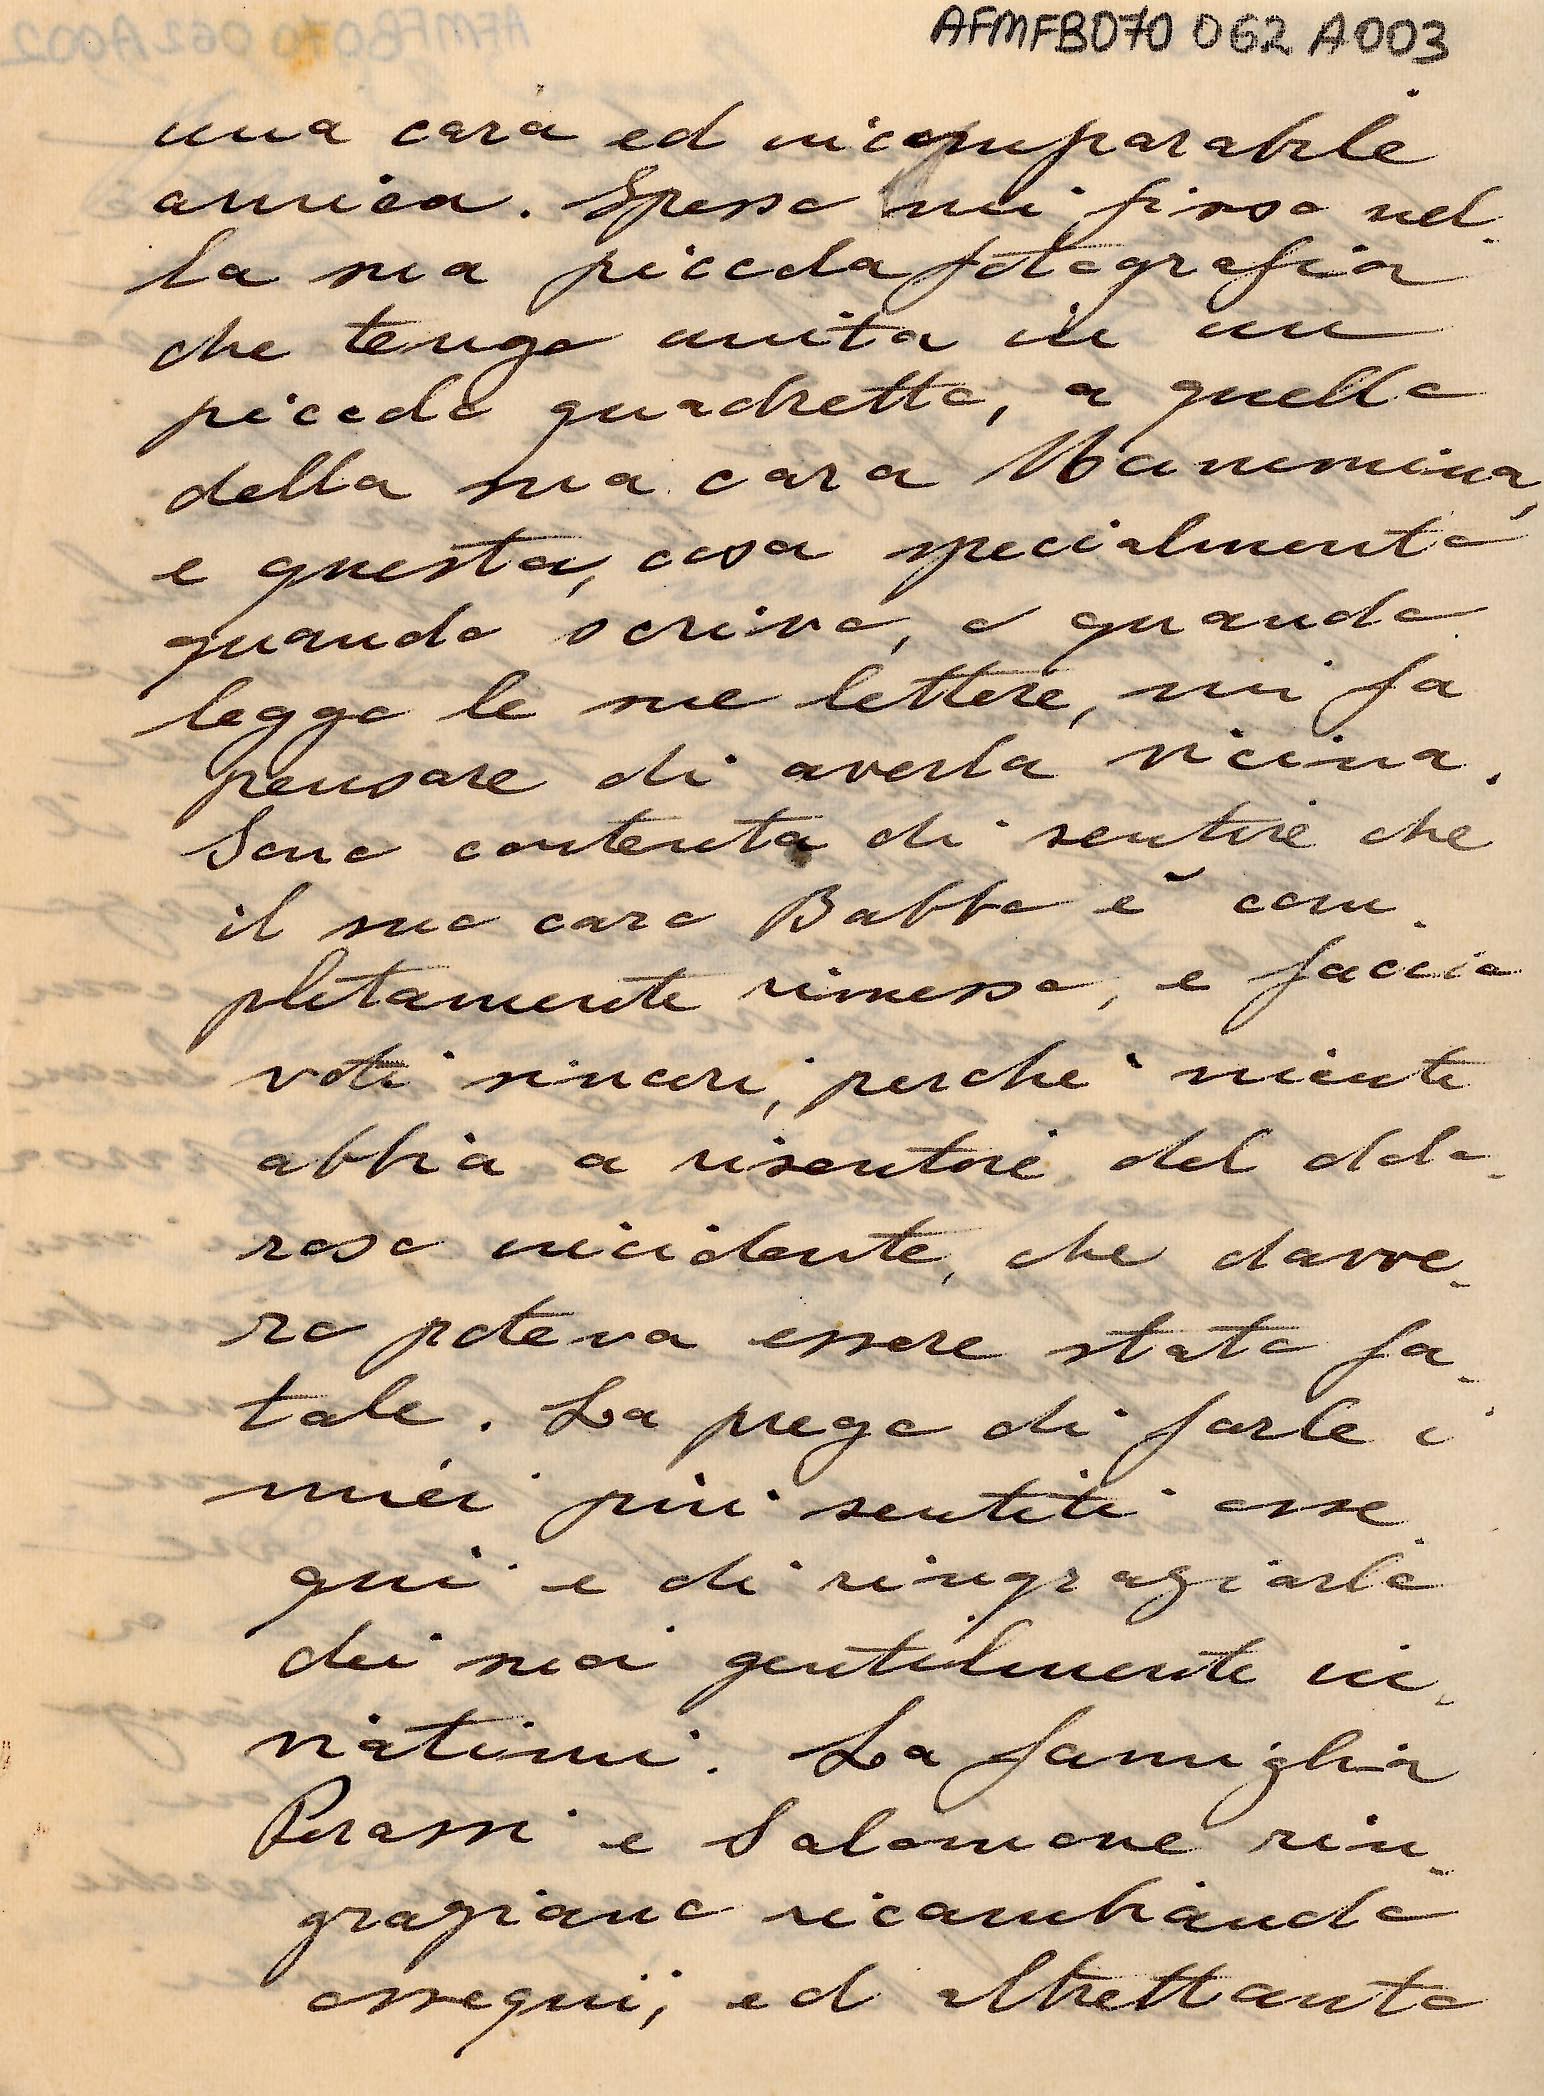 AFMFB070 062 A003
una cara ed incomparabile
amica. Spesso mi fisso nel-
la sua piccola fotografia
che tengo unita in un
piccolo quadretto, a quella
della sua cara Mammina,
e questa, cosa specialmente
quando scrivo, o quando
leggo le sue lettere, mi fa
pensare di averla vicina.
Sono contenta di sentire che
il suo caro Babbo è com-
pletamente rimesso, e faccio
voti sinceri, perchè niente
abbia a risentire del dolo-
roso incidente, che davve-
ro poteva essere stato fa-
tale. La prego di farle i
miei più sentiti osse-
qui e di ringraziarlo
dei suoi gentilmente in-
viatimi. La famiglia
Perassi e Salomone rin-
graziano ricambiando
ossequii, ed altrettanto